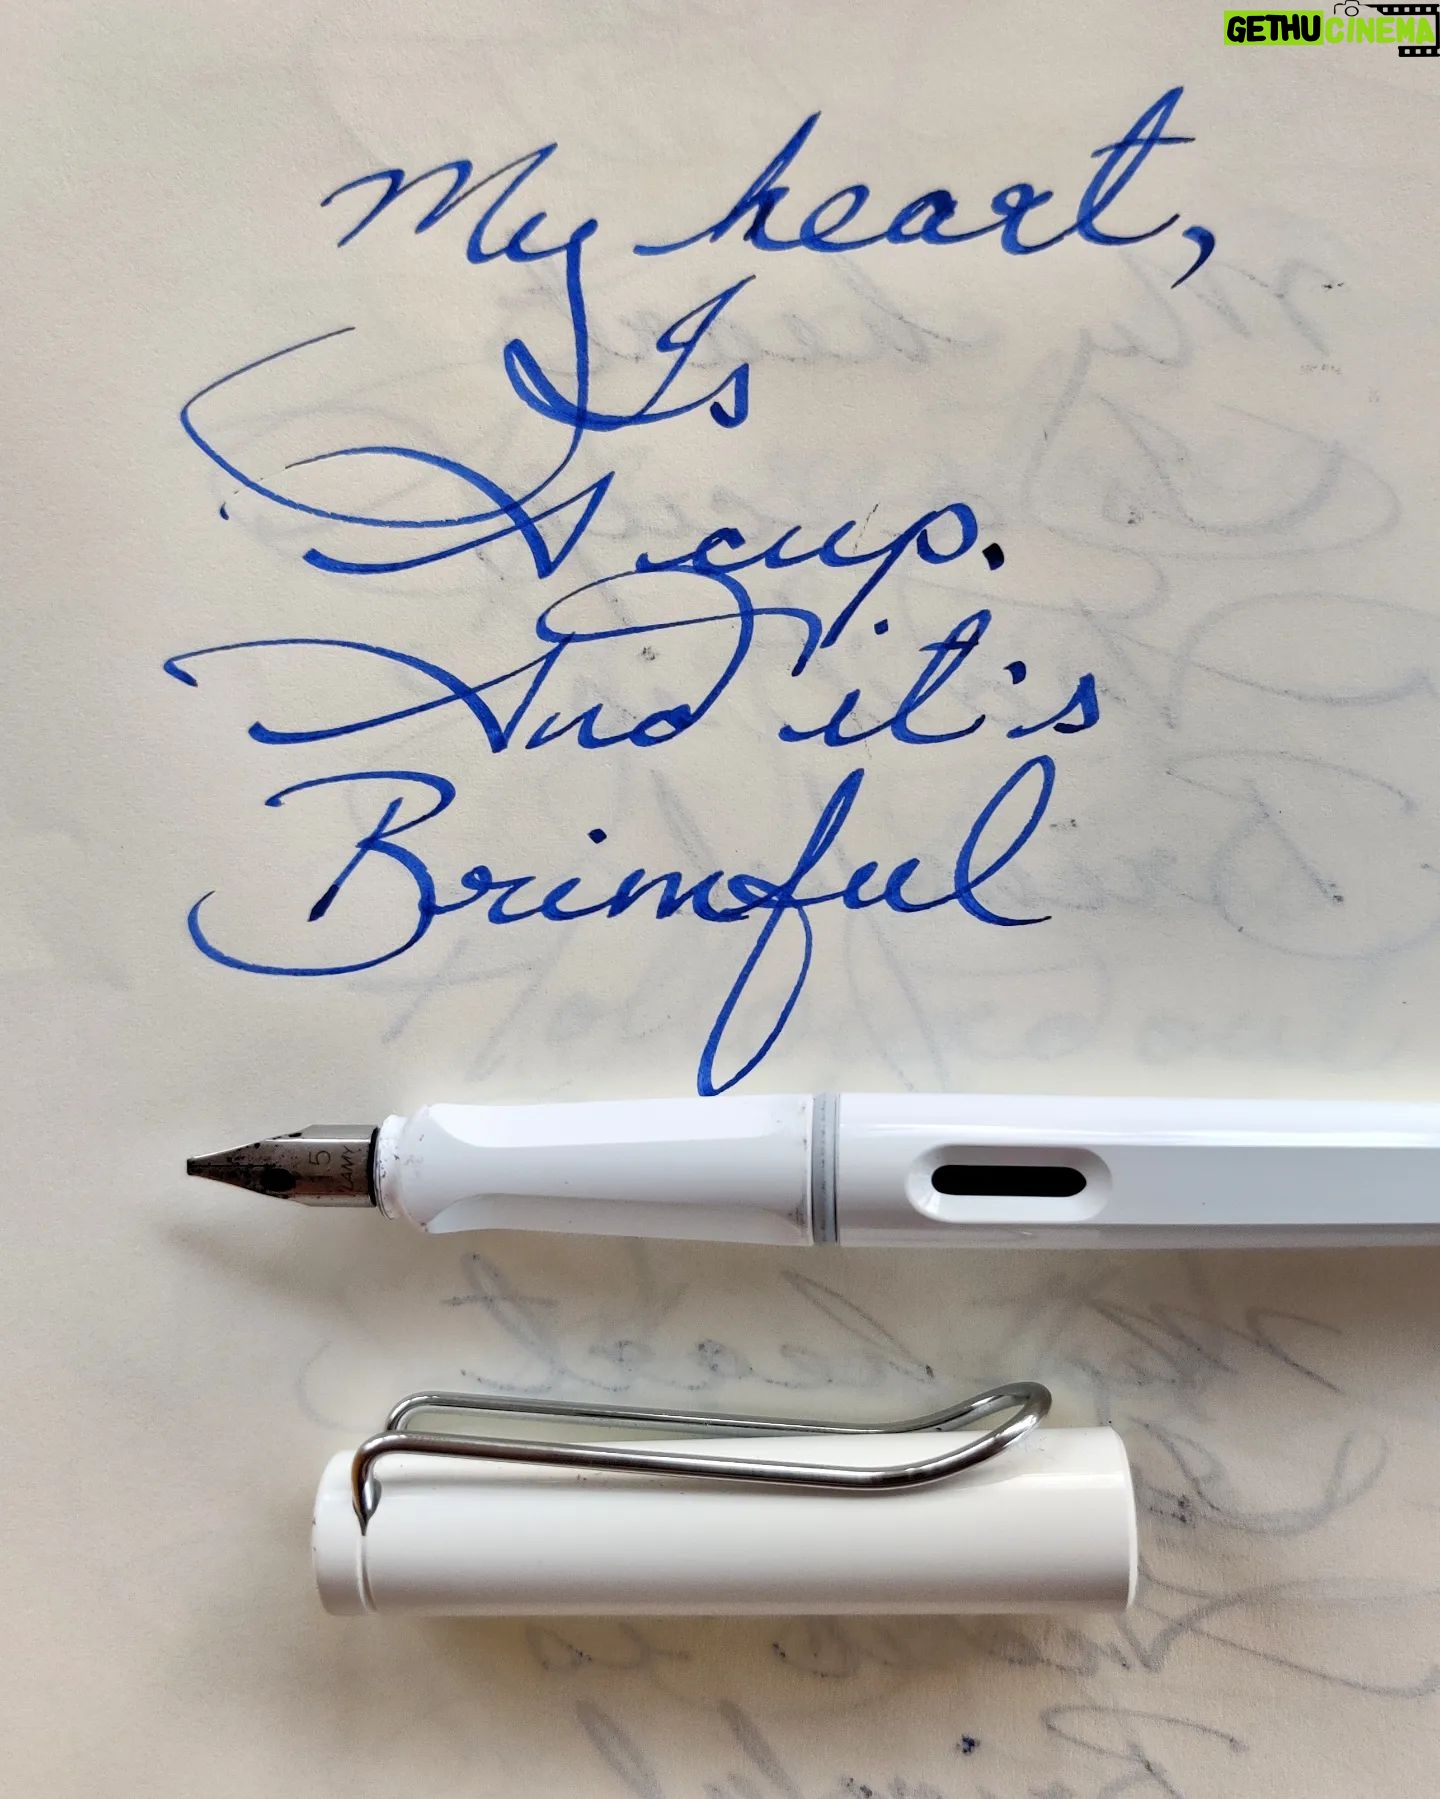 GETHUCINEMA
My heart,
Is
A cup.
And it's
Brimful
1.5
LAMY